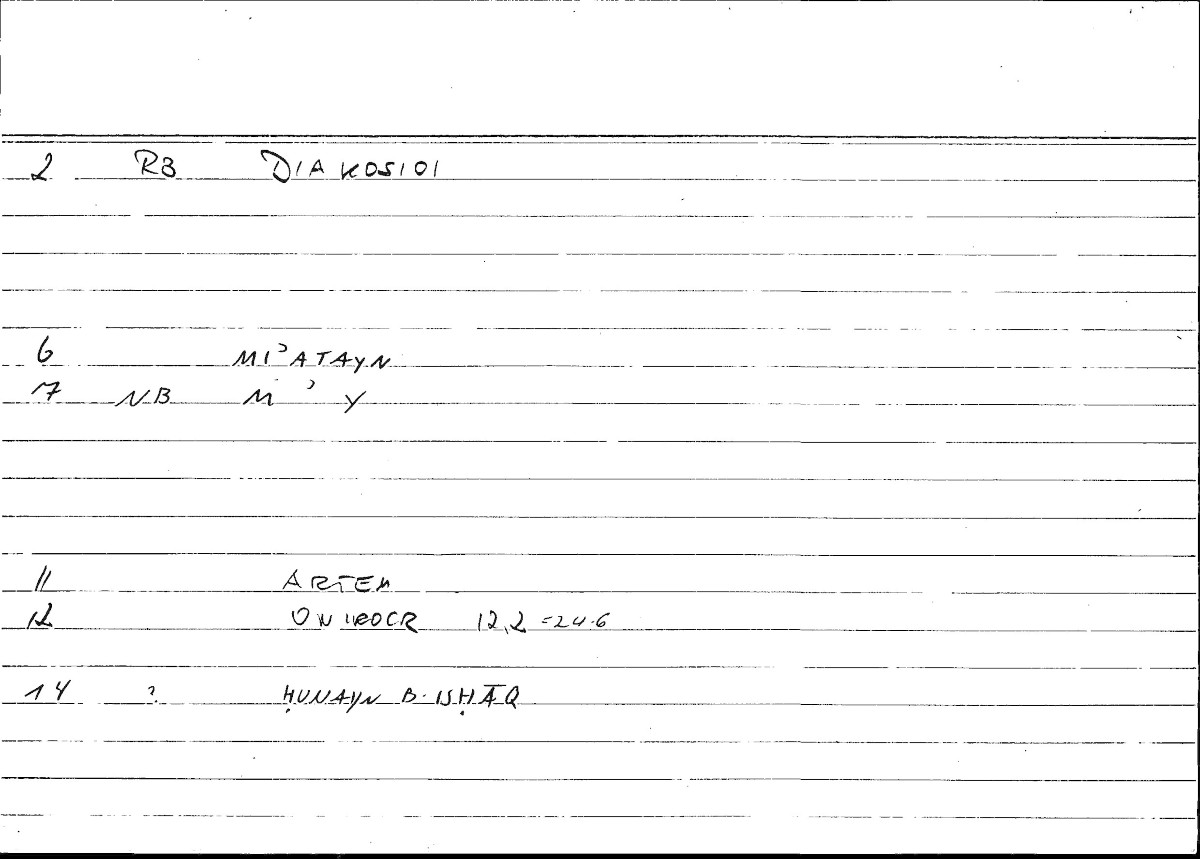 2 RB DIAKOSIOI
6 MIʾATAYN
7 NB M ʾ Y
11 ARTEM
12 ONIROCR 12,2 =24.6
14 ? ḤUNAYN B. ISḤĀQ